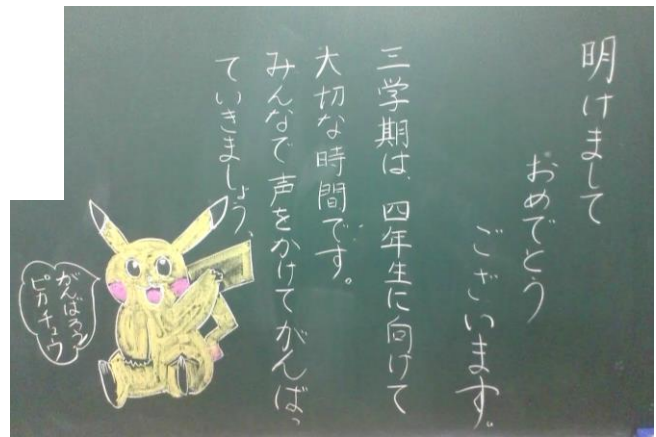 明けまして
おめでとう
ございます。
三学期は、四年生に向けて
大切な時間です。
みんなで声をかけてがんばっ
ていきましょう、
がんばろう
ピカチュウ